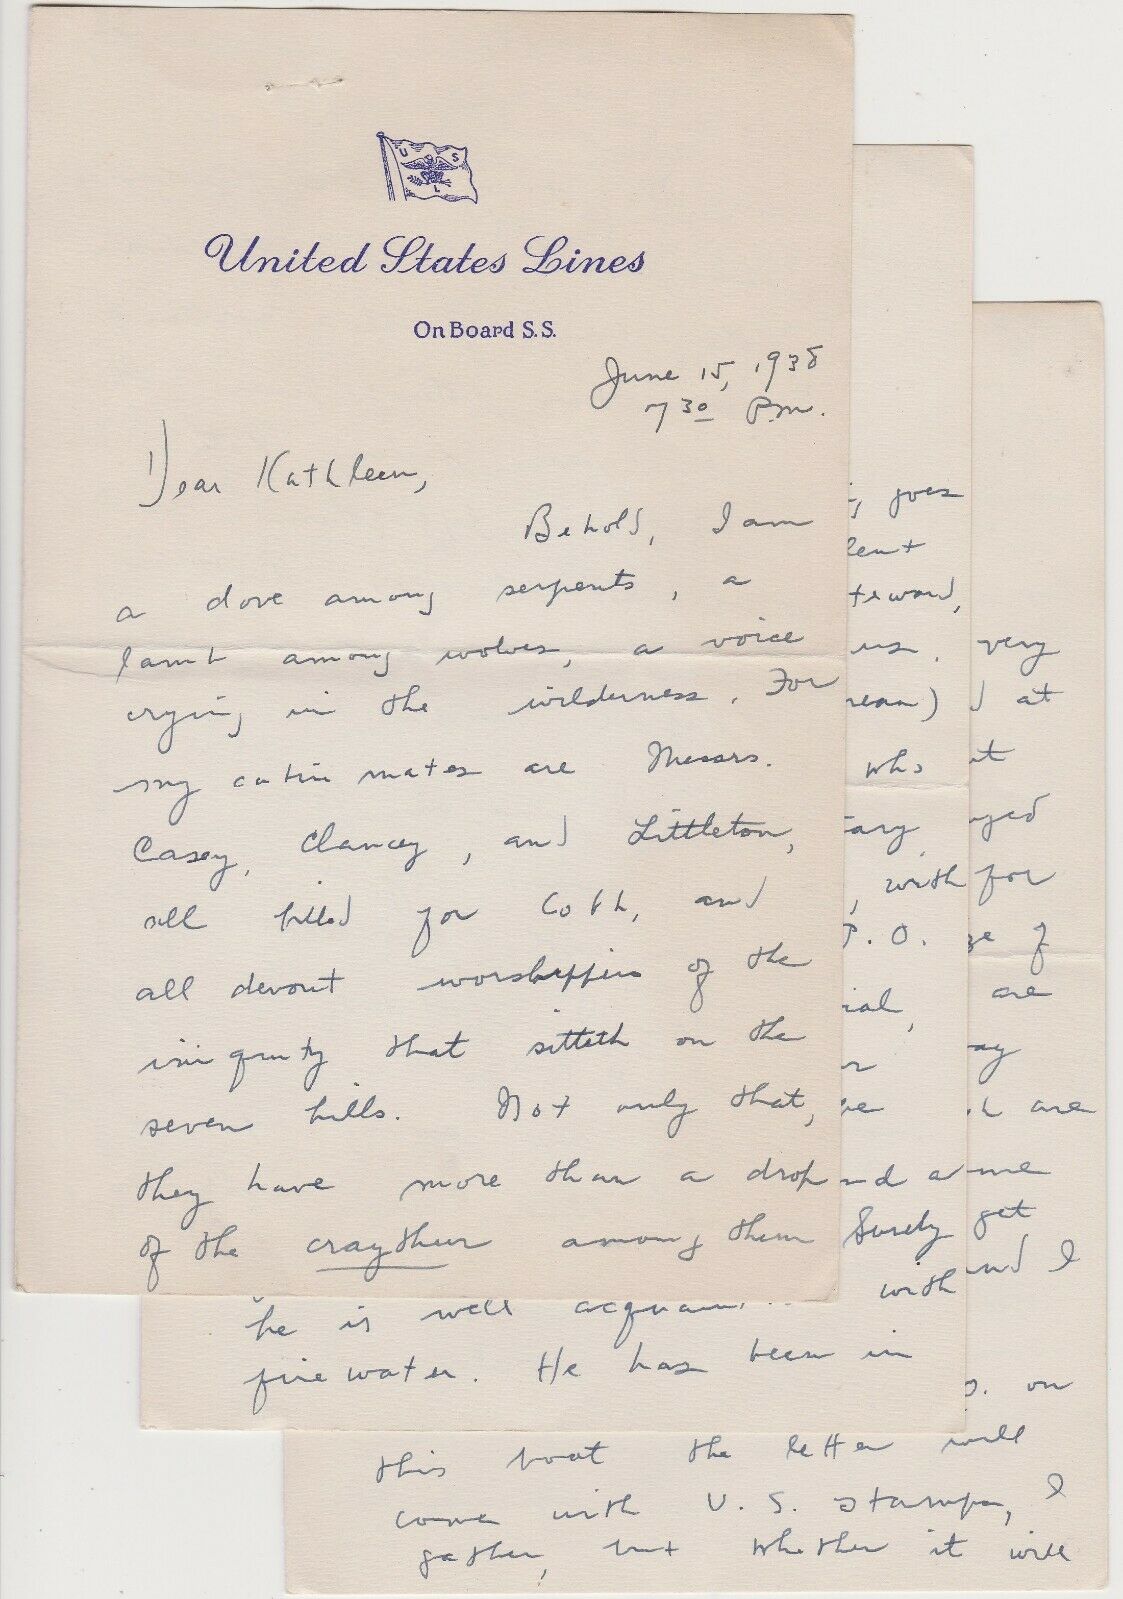 U S
L
United States Lines
On Board S.S.
June 15, 1938
7 30 P.M.
Dear Kathleen,
Behold, I am
a dove among serpents, a
lamb among wolves, a voice
crying in the wilderness. For
my cabin mates are Messrs.
Casey, Clancey, and Littleton,
all billed for Cobh, and
all devout worshippers of the
iniquity that sitteth on the
seven hills. Not only that,
they have more than a drop
of the craytheur among them
goes
lent
teward,
us.
mean)
who
tary
, with
P. O.
ial,
be
nd a
Surely
he is well with
firewater. He has been in
very
d at
ut
yed
for
ge of
are
ay
h are
me
get
and I
S. on
this boat the letter will
come with U. S. stamps, I
gather, but whether it will